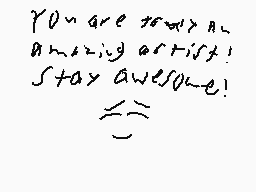 you are truly an
amazing artist!
Stay awesome!